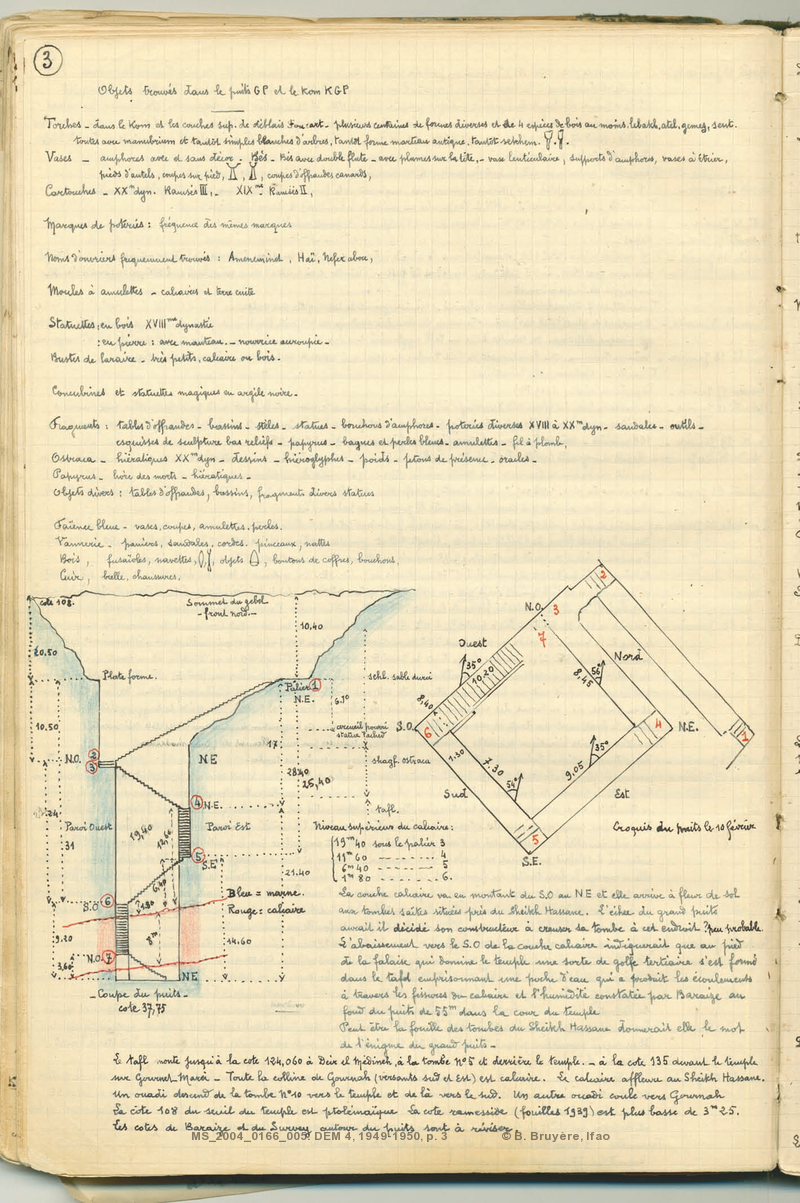 3
Objets trouvés dans le puits GP et le Kom KGP
Torches - dans le Kom et les couches sup. de déblais - plusieurs centaines de formes diverses et de 4 espèces de bois au moins. lebakh, atel, gemez, sent.
toutes avec manubrium et tantôt simples branches d'arbres, tantôt forme marteau antique, tantôt sekhem.
Vases - amphores avec et sans décor. Bès - Bès avec double flute - avec plumes sur la tête, - vase lenticulaire, supports d'amphores, vases à étrier,
pieds d'autels, coupes sur pied, coupes d'offrandes canards,
Cartouches - XXme dyn. Ramsès III, - XIXme Ramsès II,
Marques de poteries : fréquence des mêmes marques
Noms d'ouvriers fréquemment trouvés : Amenemind, Haï, Neferabou,
Moules à amulettes - calcaires et terre cuite
Statuettes : en bois XVIIIme dynastie
: en pierre : avec manteau. - nourrice accroupie -
Bustes de laraire - très petits, calcaire ou bois -
Concubines et statuettes magiques en argile noire -
Fragments : tables d'offrandes - bassins - stèles - statues - bouchons d'amphores - poteries diverses XVIII à XXme dyn - sandales - outils -
esquisses de sculpture bas reliefs - papyrus - bagues et perles bleues - amulettes - fil à plomb,
Ostraca - hiératiques XXme dyn - dessins - hiéroglyphes - poids - jetons de présence - oracles -
Papyrus - livre des morts - hiératiques -
Objets divers : tables d'offrandes, bassins, fragments divers statues
Faïence bleue - vases, coupes, amulettes. perles.
Vannerie - paniers, sandales, cordes. pinceaux, nattes
Bois, fusaïoles, navettes, objets, boutons de coffres, bouchons,
Cuir, belle, chaussures,
cote 108.
Sommet du gebel
- front nord -
10.40
20.50
Plate forme.
Palier 1
N.E.
schl. sable durci
6.70
cercueil pourri
10.50
N.O. 2
3
NE
17
28.40
25,40
shagf. ostraca
tafl.
4 N.E.
24
31
Paroi Ouest
19,40
Paroi Est
5
S.E
21.40
S.O 6
Bleu = marne.
Rouge : calcaire
9.20
14.60
3,60
N.O. 7
NE
- Coupe du puits -
cote 37,75
2
N.O. 3
7
Ouest
35°
10,20
8,40
S.O.
6
Nord
56°
8,45
4
N.E.
1
1.30
7.30
54°
9,05
35°
Sud
Est
5
S.E.
Croquis du puits le 10 février
Niveau supérieur du calcaire :
19m40 sous le palier 3
11m60 - - - - - - 4
6m40 - - - - - - 5
1m80 - - - - - - 6.
La couche calcaire va en montant du S.O au N.E et elle arrive à fleur de sol
aux tombes saïtes situées près du Sheikh Hassane. L'échec du grand puits
aurait il décidé son constructeur à creuser sa tombe à cet endroit ? peu probable.
L'abaissement vers le S.O de la couche calcaire indiquerait que au pied
de la falaise qui domine le temple une sorte de golfe tertiaire s'est formé
dans le tafl emprisonnant une poche d'eau qui a produit les écoulements
à travers les fissures du calcaire et l'humidité constatée par Baraize au
fond du puits de 55m dans la cour du temple
Peut être la fouille des tombes du Sheikh Hassane donnerait elle le mot
de l'énigme du grand puits -
Le tafl monte jusqu'à la cote 124,060 à Deir el Médineh, à la tombe N°5 et derrière le temple. - à la cote 135 devant le temple
sur Gournet-Maraï - Toute la colline de Gournah (versants sud et Est) est calcaire. Le calcaire affleure au Sheikh Hassane.
Un ouadi descend de la tombe N°10 vers le temple et de là vers le sud. Un autre ouadi coule vers Gournah
La côte 108 du seuil du temple est ptolémaïque La cote ramesside (fouilles 1939) est plus basse de 3m25.
Les cotes de Baraize et du Survey autour du puits sont à réviser.
MS_2004_0166_005 DEM 4, 1949-1950, p. 3 © B. Bruyère, Ifao